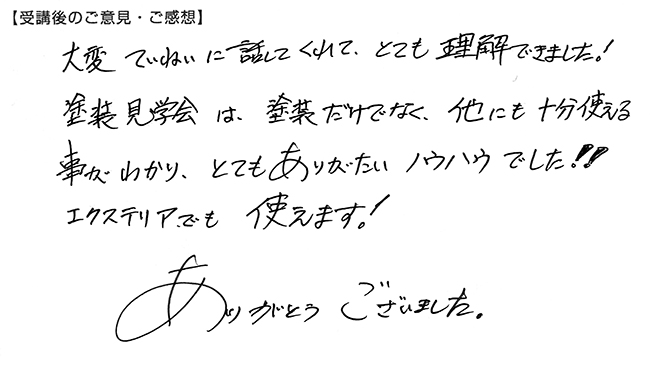 【受講後のご意見・ご感想】
大変 ていねいに 話してくれて、とても 理解できました!
塗装見学会 は、塗装だけでなく、他にも 十分使える
事が わかり、とてもありがたい ノウハウ でした!!
エクステリア.でも 使えます!
ありがとう ございました。